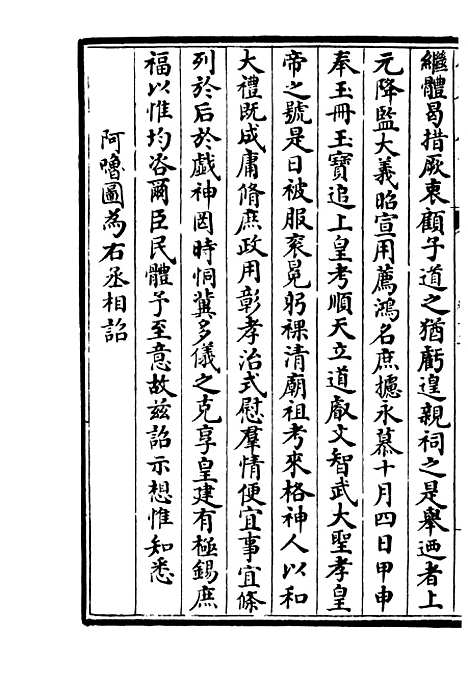 繼體曷措厥衷顧子道之猶虧遑親祠之是舉迺者上
元降監大義昭宣用薦鴻名庶攄永慕十月四日甲申
奉玉冊玉寶追上皇考順天立道叡文智武大聖孝皇
帝之號是日被服衮冕躬祼清廟祖考來格神人以和
大禮既成庸脩庶政用彰孝治式慰羣情便宜事宜條
列於后於戲神罔時恫冀多儀之克享皇建有極錫庶
福以惟均咨爾臣民體予至意故兹詔示想惟知悉
阿嚕圖為右丞相詔